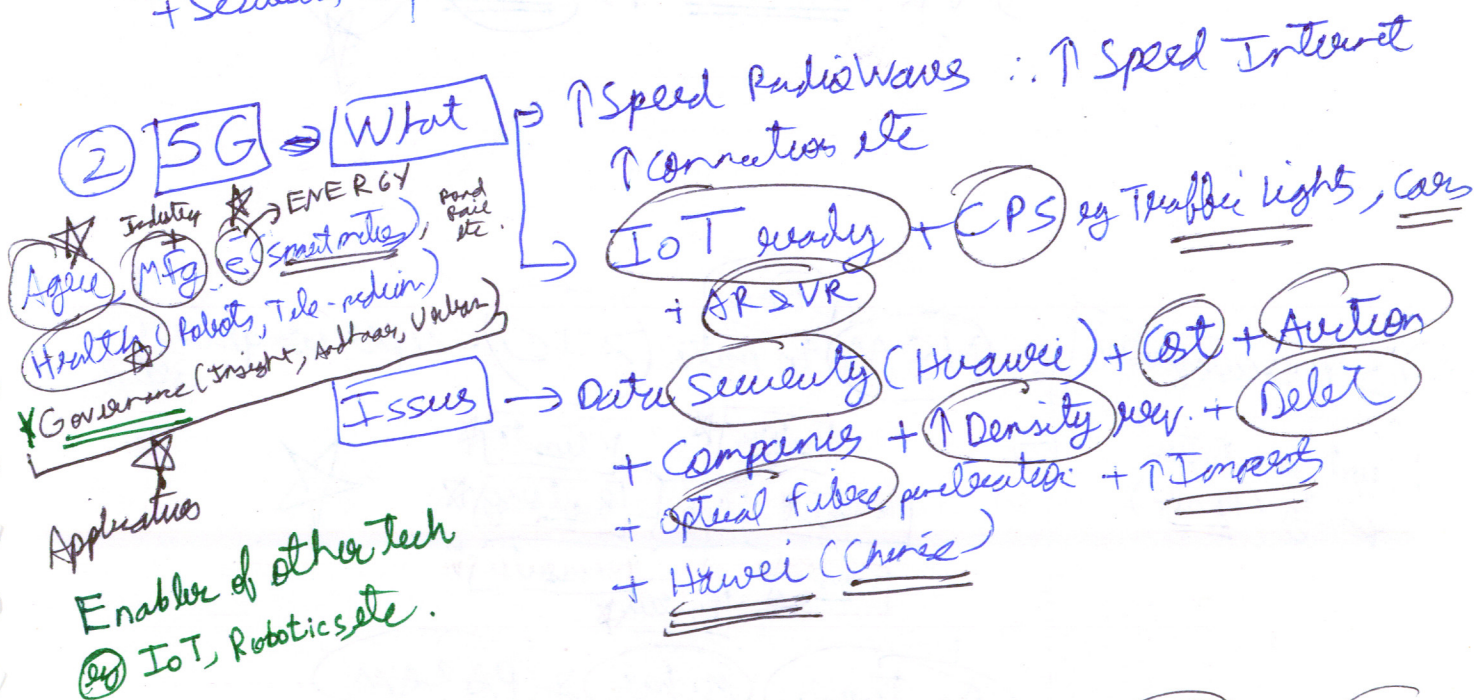 +
② 5G → What → ↑ Speed Radio Waves ∴ ↑ Speed Internet
↑ Connections etc
→ IoT ready + CPS eg Traffic Lights, Cars
+ AR & VR
Industry
+
→ ENERGY
Agri, Mfg. e (Smart meters), Road Rail etc.
Health (Robots, Tele-medicin)
Governance (Insight, Aadhaar, Urban)
Applications
Enabler of other tech
eg IoT, Robotics, etc.
Issues → Data Security (Huawei) + Cost + Auction
+ Companies + ↑ Density req. + Debt
+ Optical Fibre penetration + ↑ Imports
+ Hawei (Chinese)